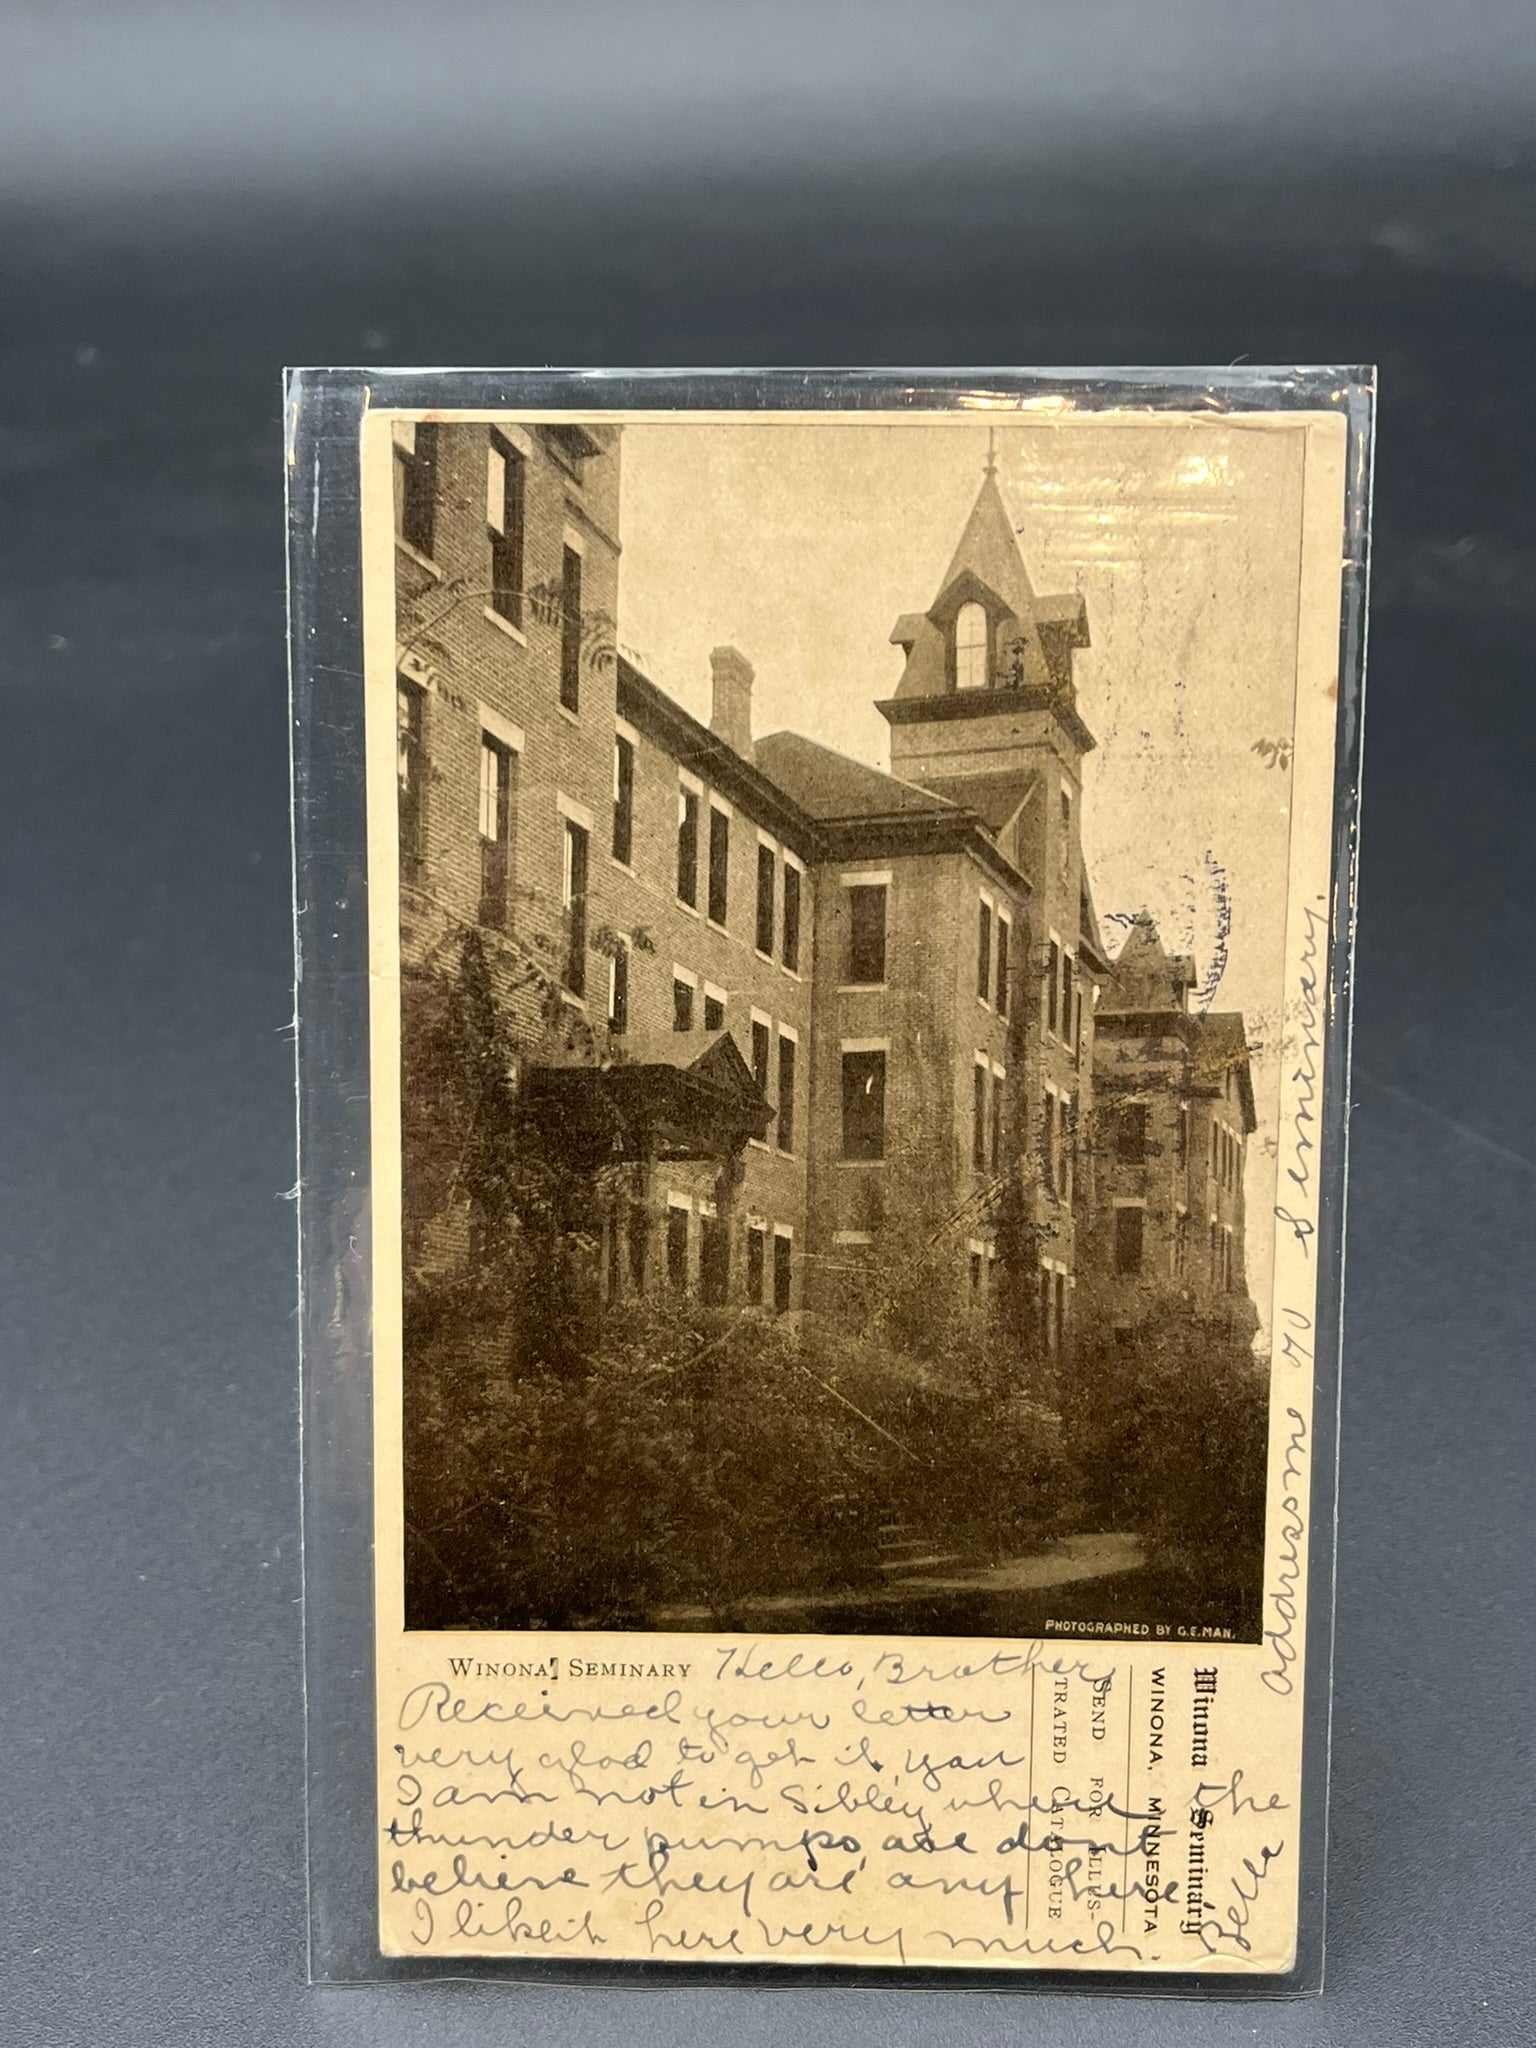 PHOTOGRAPHED BY G.E.MAN.
WINONA SEMINARY
Hello, Brother
Received your letter
very glad to get it, you
I am not in Sibley where the
thunder pumps, are dont
believe they are any here
I like it here very much.
Bella
address me % Seminary.
Winona Seminary
WINONA, MINNESOTA
SEND FOR ILLUS-
TRATED CATALOGUE